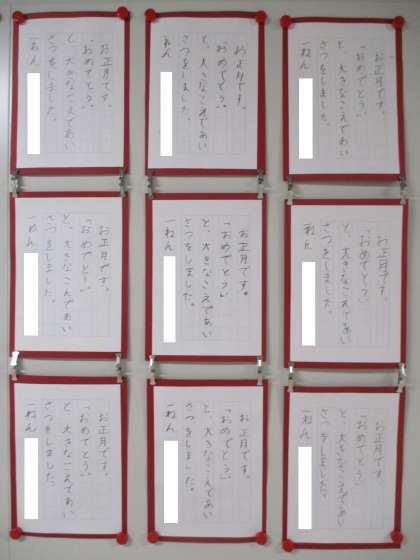 お正月です。
「おめでとう。」
と、大きなこえであい
さつをしました。
一ねん
お正月です。
「おめでとう。」
と、大きなこえであい
さつをしました。
一ねん
お正月です。
「おめでとう」
と、大きなこえであい
さつをしました。
一ねん
お正月です。
「おめでとう」
と、大きなこえであい
さつをしました。
一ねん
お正月です。
「おめでとう」
と、大きなこえであい
さつをしました。
一ねん
お正月です。
「おめでとう」
と、大きなこえであい
さつをしました。
一ねん
お正月です。
「おめでとう」
と、大きなこえであい
さつをしました。
一ねん
お正月です。
「おめでとう」
と、大きなこえであい
さつをしました。
一ねん
お正月です。
「おめでとう」
と、大きなこえであい
さつをしました。
一ねん